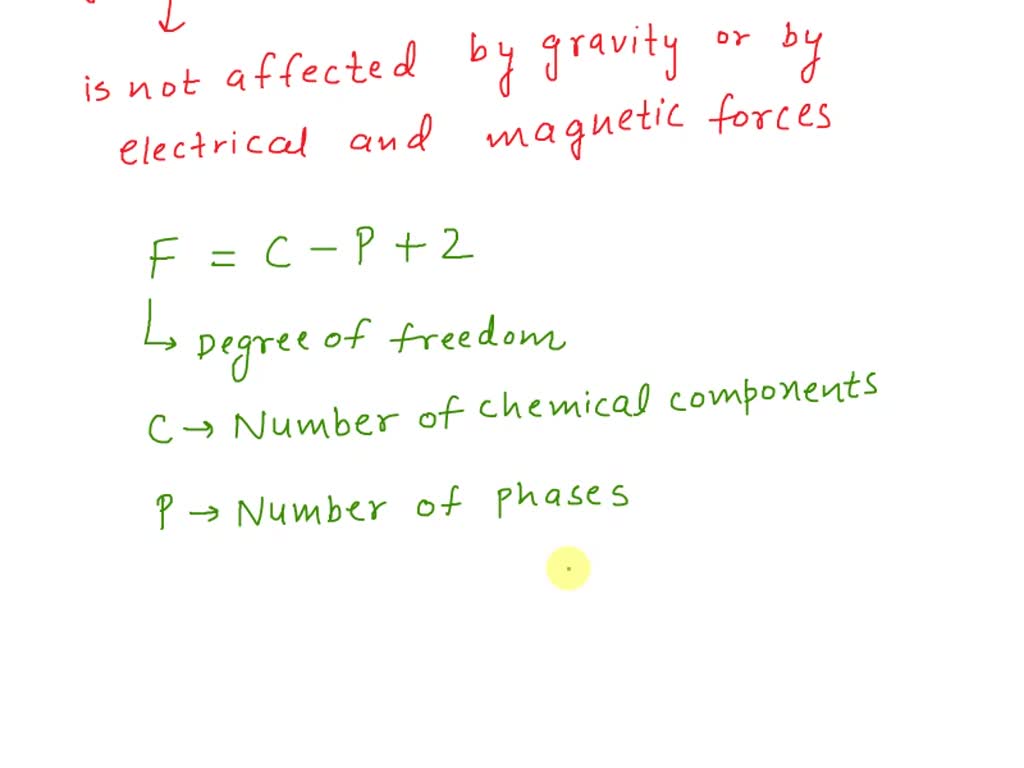 is not affected by gravity or by
electrical and magnetic forces
F = C - P + 2
↳ Degree of freedom
C → Number of chemical components
P → Number of phases